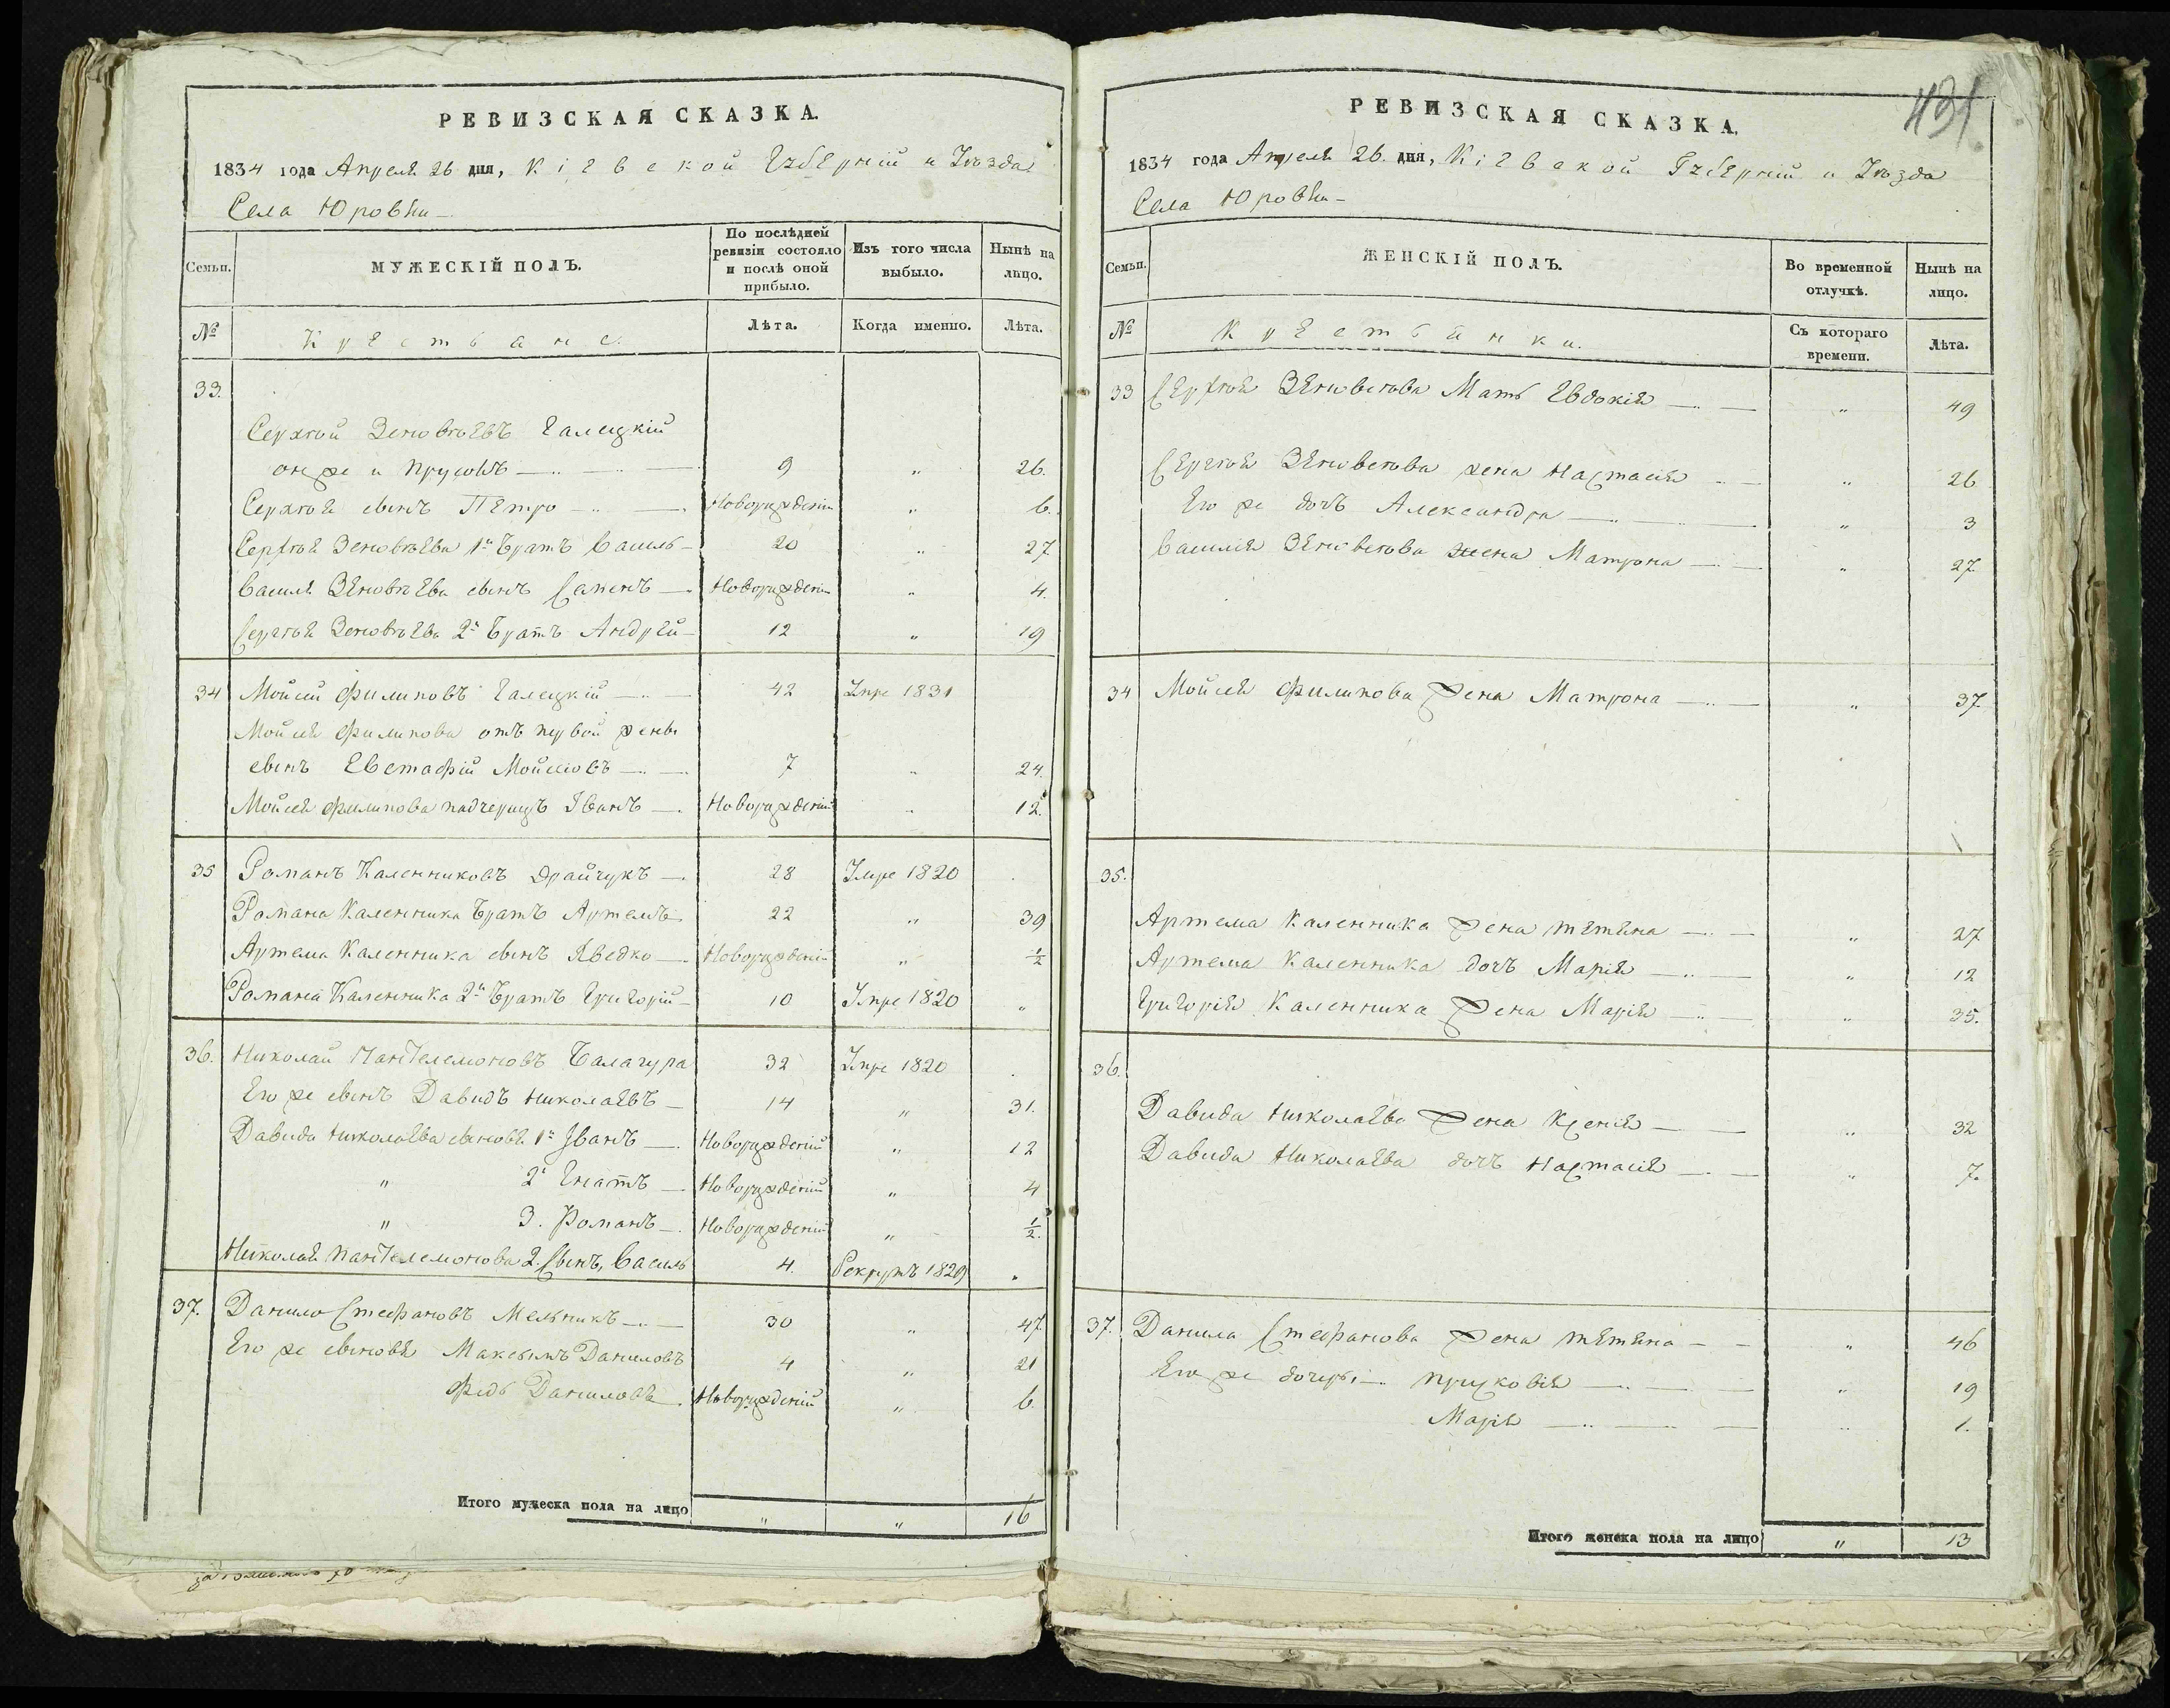 РЕВИЗСКАЯ СКАЗКА.
1834 года Апреля 26 дня, Кіевской Губерніи и Уѣзда
Села Юровки
Семьи. МУЖЕСКІЙ ПОЛЪ. По послѣдней ревизіи состояло и послѣ оной прибыло. Изъ того числа выбыло. Нынѣ на лицо.
№ Крестьяне. Лѣта. Когда именно. Лѣта.
33.
Сергѣй Зеновѣевъ Галецкій
онже и 9 " 26.
Сергѣя сынъ Петро Новорожденій " 6.
Сергѣя Зеновѣева 1й братъ Василь 20 " 27
Василя Зеновѣева сынъ Новорожденій " 4.
Сергѣя Зеновѣева 2й братъ Андрей 12 " 19
34 Мойсей Филиповъ Галецкій 42 Умре 1831
Мойсея Филипова отъ первой жены
сынъ Евстафій Мойсеовъ 7 " 24.
Мойсея Филипова падчерицъ Іванъ Новорожденій " 12.
35 Романъ Каленниковъ Драйчукъ 28 Умре 1820
Романа Каленника братъ Артемъ 22 " 39
Артема Каленника сынъ Новорожденій " 1/2
Романа Каленника 2й братъ Григорій 10 Умре 1820 "
36. Николай Пантелемоновъ Балагура 32 Умре 1820
Его же сынъ Давидъ Николаевъ 14 " 31.
Давида Николаева сыновя 1й Іванъ Новорожденій " 12
" 2й Гнатъ Новорожденій " 4
" 3. Романъ Новорожденій " 1/2.
Николая Пантелемонова 2. Сынъ, Василь 4. Рекрутъ 1829
37. Данило Стефановъ Мельникъ 30 " 47
Его же сыновя Максымъ Даниловъ 4 " 21
Федь Даниловъ. Новорожденій " 6.
Итого мужеска пола на лицо " " 16
431
РЕВИЗСКАЯ СКАЗКА.
1834 года Апреля 26. дня, Кіевской Губерніи и Уѣзда
Села Юровки
Семьи. ЖЕНСКІЙ ПОЛЪ. Во временной отлучкѣ. Нынѣ на лицо.
№ Крестьянки. Съ котораго времени. Лѣта.
33 Сергѣя Зеновѣева Мать Евдокія " 49
Сергѣя Зеновѣева жена Настасія " 26
Его же дочь Александра " 3
Василія Зеновѣева жена Матрона " 27
34 Мойсея Филипова жена Матрона " 37
35.
Артема Каленника жена Тетяна " 27
Артема Каленника дочь Марія " 12
Григорія Каленника жена Марія " 35.
36.
Давида Николаева жена Ксенія " 32
Давида Николаева дочь Настасія " 7.
37. Данила Стефанова жена Тетяна " 46
Его же дочери Прусковія " 19
Марія " 1.
Итого женска пола на лицо " 13